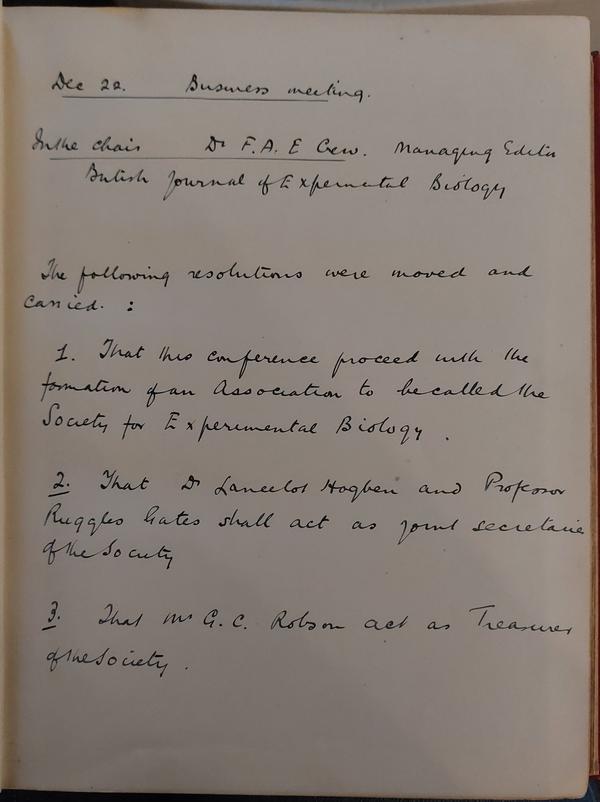 Dec 22. Business meeting.
In the chair Dr F.A.E Crew. Managing Editor
British Journal of Experimental Biology
The following resolutions were moved and
carried. :
1. That this conference proceed with the
formation of an Association to be called the
Society for Experimental Biology.
2. That Dr Lancelot Hogben and Professor
Ruggles Gates shall act as joint secretaries
of the Society
3. That Mr G.C. Robson act as Treasurer
of the Society.